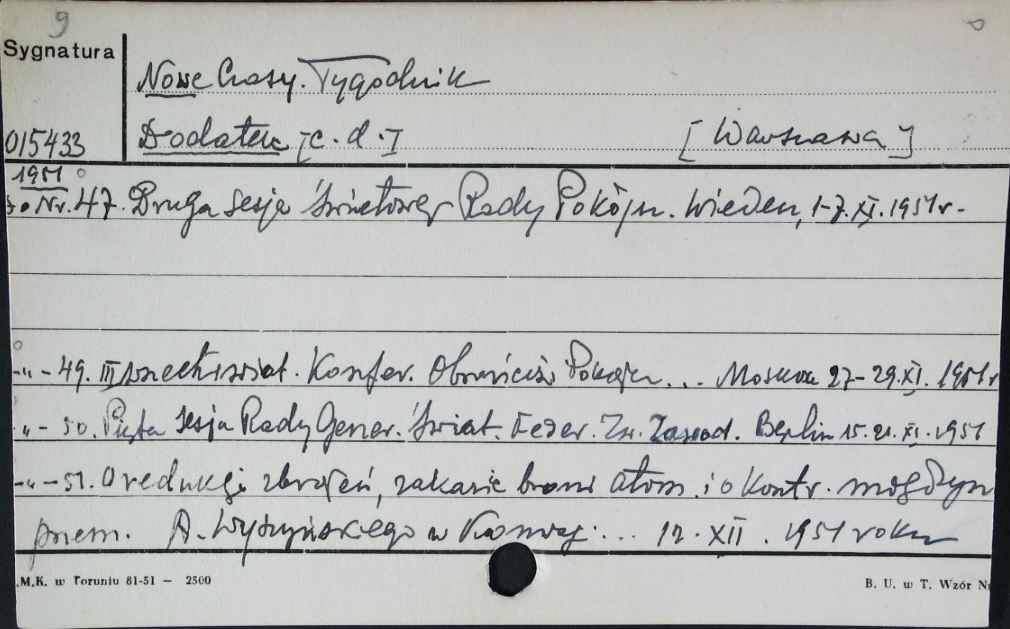 9
Sygnatura
Nowe Czasy. Tygodnik
015433
Dodatek [c. d.]
[Warszawa]
1951
do Nr. 47. Druga sesja Światowej Rady Pokoju. Wiedeń, 1-7. XI. 1951 r.
-"- 49. III wszechświat. Konfer. Obrońców Pokoju... Moskwa 27-29. XI. 1951 r
-"- 50. Piąta sesja Rady Gener. Świat. Feder. Zw. Zawod. Berlin 15. 21. XI. 1951
-"- 51. O redukcji zbrojeń, zakazie broni atom. i o kontr. międzyn
przem. A. Wyszyńskiego w ... 12. XII. 1951 roku
.M.K. w Toruniu 81-51 — 2500
B. U. w T. Wzór N